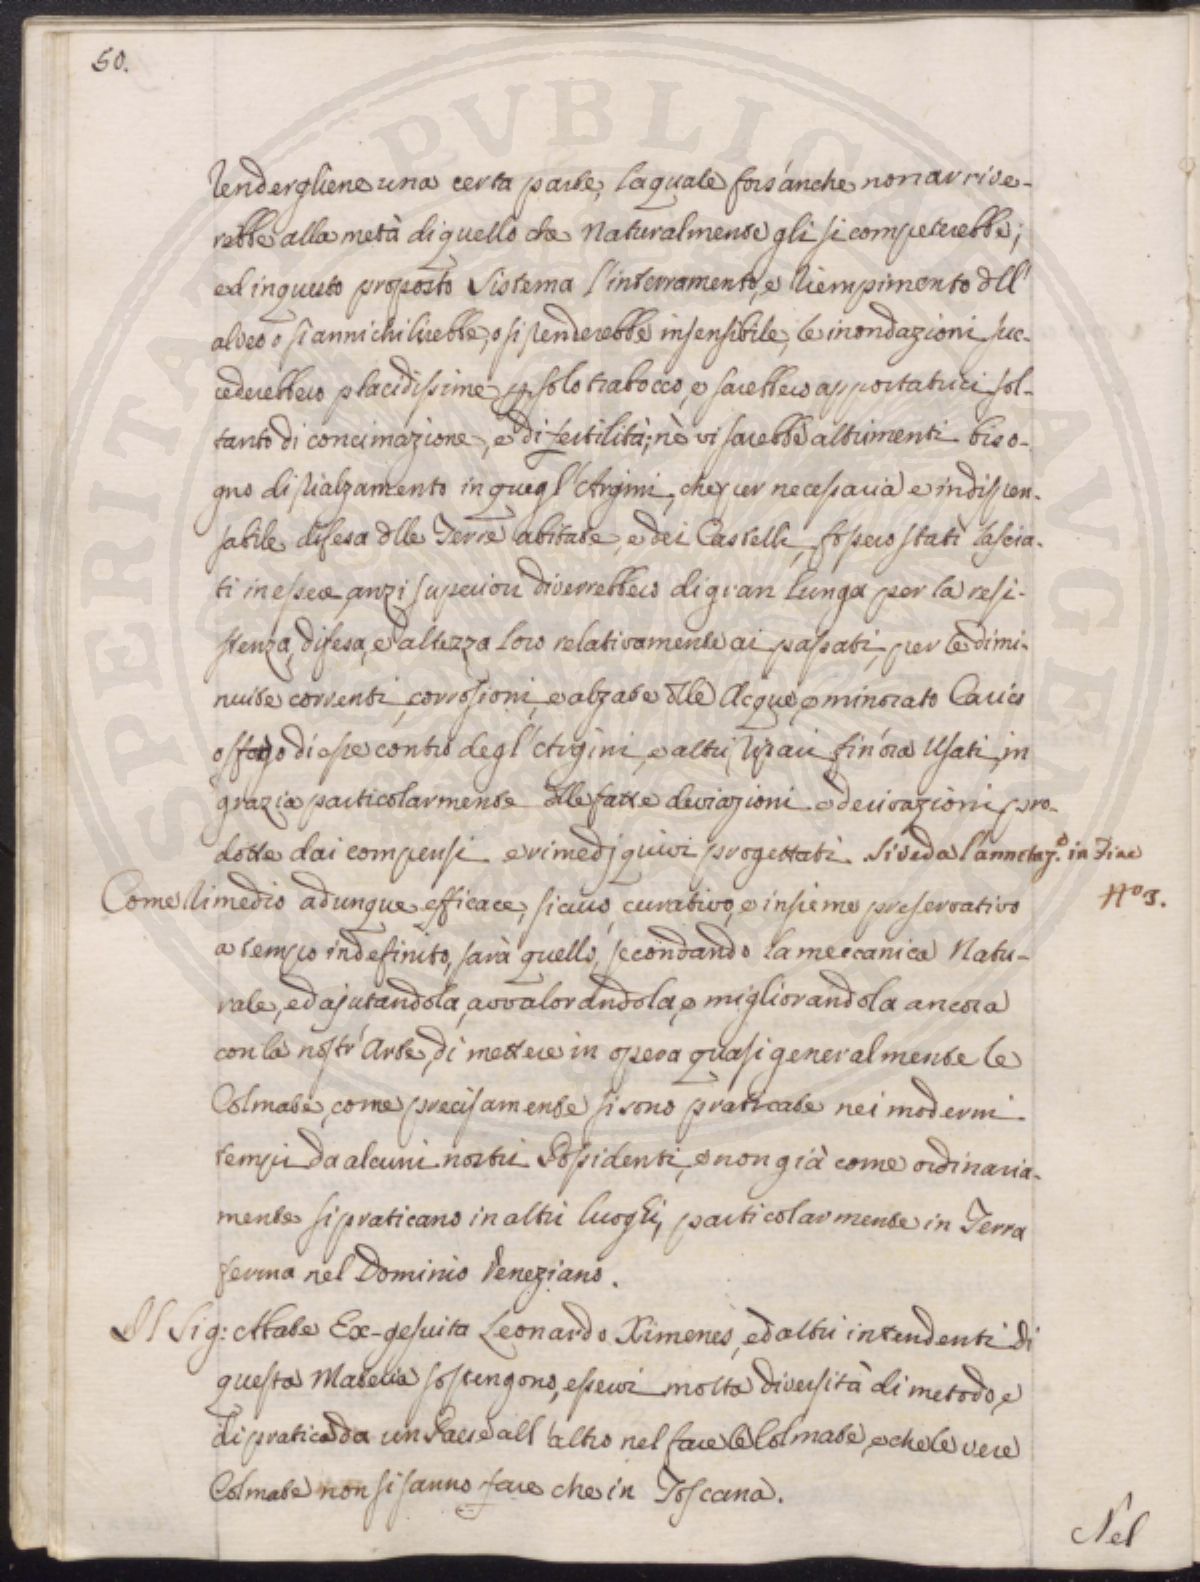 50.
Rendergliene una certa parte, la quale fors'anche non arrive-
rebbe alla metà di quello che Naturalmente gli si competerebbe;
ed in questo proposto Sistema l'interramento, e Riempimento dell'
alveo o si annichilirebbe, o si renderebbe insensibile, le inondazioni suc-
cederebbero placidissime per solo trabocco, e sarebbero apportatrici sol-
tanto di concimazione, e di fertilità; nè vi sarebbe altrimenti biso-
gno di rialzamento in quegl'Argini, che per necessaria e indispen-
sabile difesa delle Terre abitate, e dei Castelli, fossero stati lascia-
ti in essere, anzi superiori diverrebbero di gran lunga per la resi-
stenza, difesa, ed altezza loro relativamente ai passati, per le dimi-
nuite correnti, corrosioni, e alzate delle Acque, e minorato Carico
o sfogo di esse contro degl'Argini, e altri Ripari fin'ora Usati, in
grazia particolarmente delle fatte deviazioni e derivazioni pro-
dotte dai compensi e rimedj quivi progettati. Si veda l'annotaz.e in Fine
N.o 3.
Come Rimedio adunque efficace, sicuro, curativo, e insieme preservativo
a tempo indefinito, sarà quello, secondando la meccanica Natu-
rale, ed ajutandola, avvalorandola, e migliorandola ancora
con la nostr'Arte, di mettere in opera quasi generalmente le
Colmate, come precisamente si sono praticate nei moderni
tempi da alcuni nostri Possidenti, e non già come ordinaria-
mente si praticano in altri luoghi, particolarmente in Terra
ferma nel Dominio Veneziano.
Il Sig: Abate Ex-gesuita Leonardo Ximenes, ed altri intendenti di
questa Materia sostengono, esservi molta diversità di metodo, e
di pratica da un Paese all'altro nel fare le Colmate, e che le vere
Colmate non si sanno fare che in Toscana.
Nel